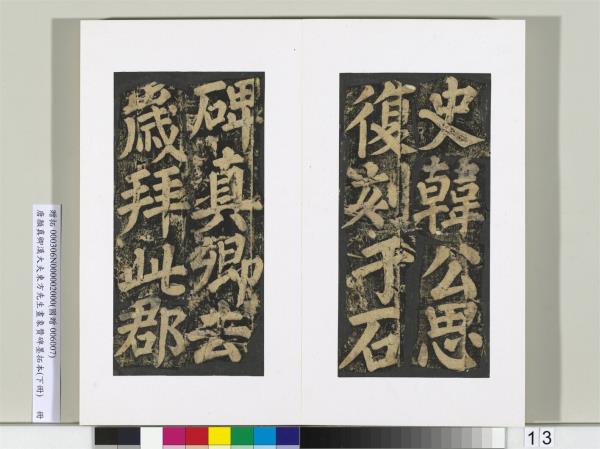 史韓公思
復刻于石
碑真卿去
歲拜此郡
贈拓 000306N000002000(國贈 006007)
唐顏真卿漢大夫東方先生畫象贊碑墨拓本(下冊) 冊
13